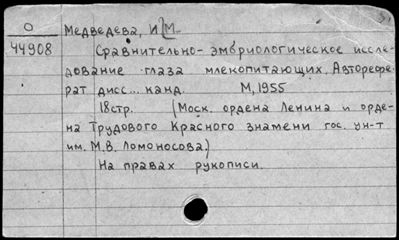 О Медведева, И [М.
44908 Сравнительно-эмбриологическое иссле-
дование глаза млекопитающих. Авторефе-
рат дисс... канд. М, 1955
18стр. (Моск. ордена Ленина и орде-
на Трудового Красного знамени гос. ун-т
им. М.В. Ломоносова.)
На правах рукописи.